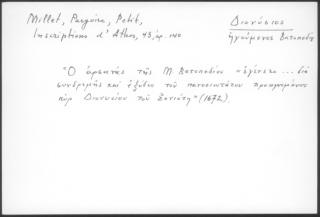 Millet, Pargoire, Petit,
Inscriptions d' Athos, 43, ἀρ. 140
Διονύσιος
ἡγούμενος Βατοπεδίου
"Ὁ ἀρσανάς τῆς Μ. Βατοπεδίου «ἐγένετο ... διά
συνδρομῆς καί ἐξόδου τοῦ πανοσιωτάτου προηγουμένου
κύρ Διονυσίου τοῦ" (1672).